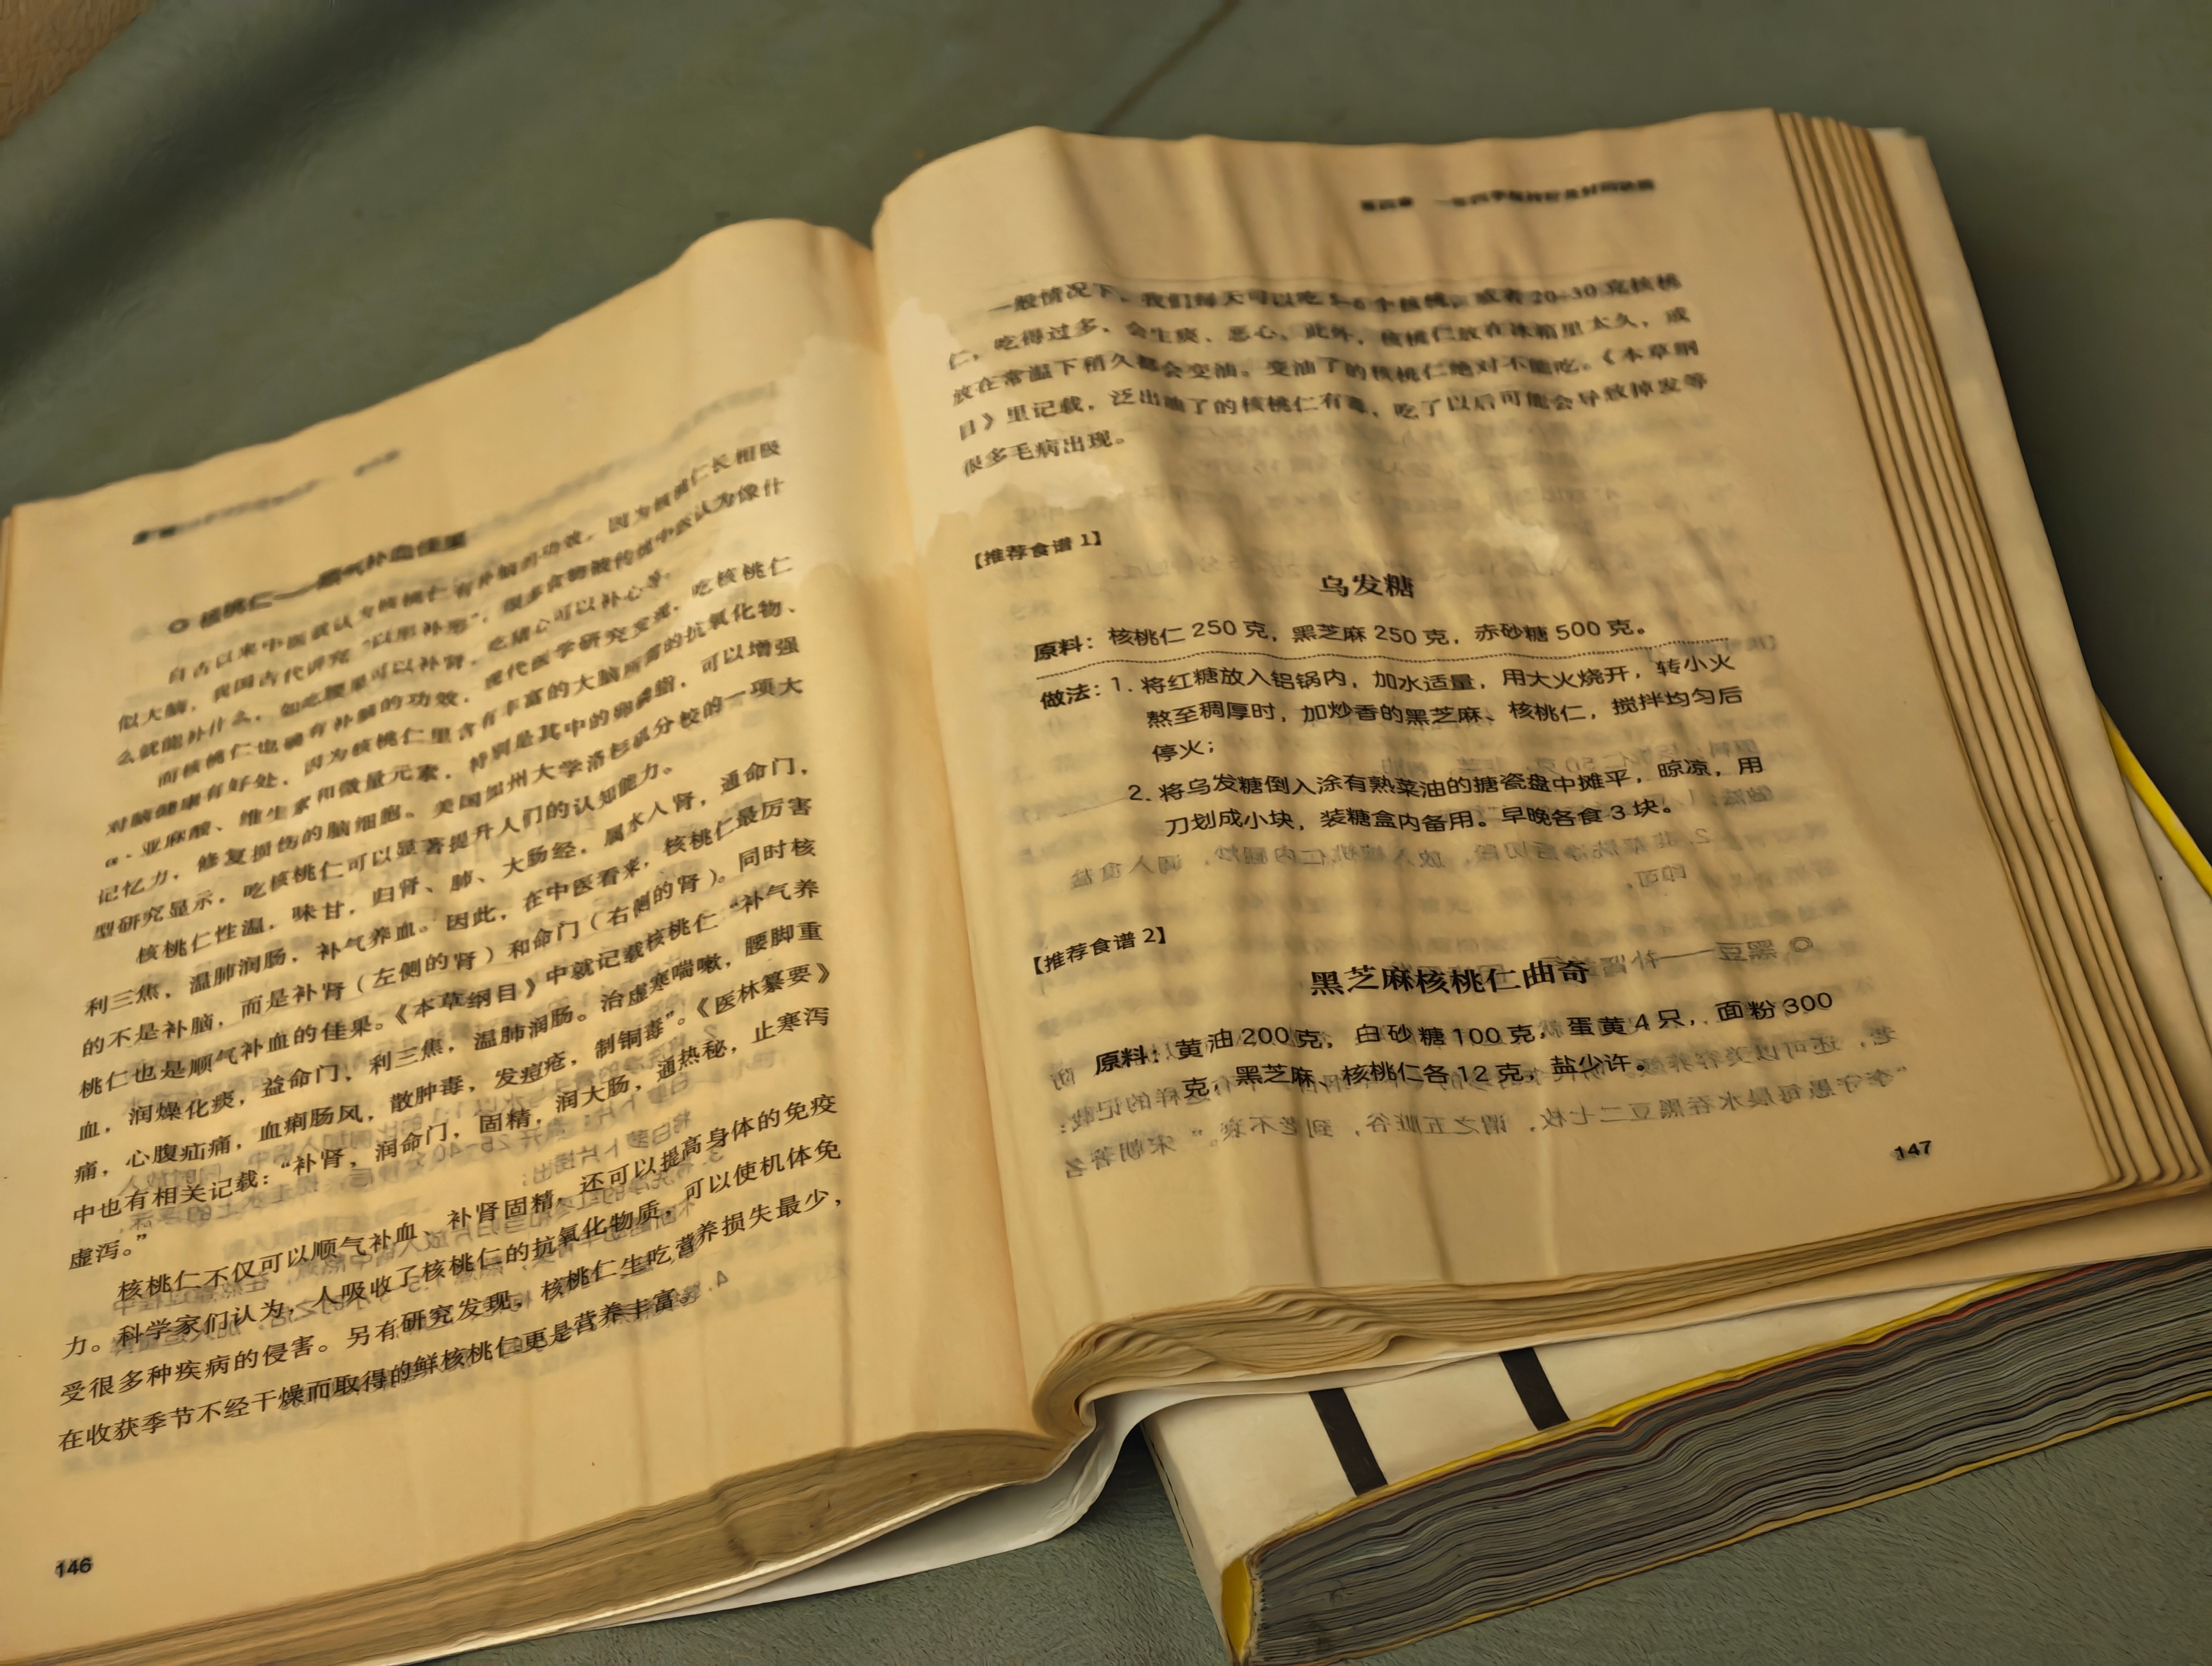 核桃仁——顺气补血佳果
自古以来中医就认为核桃仁有补脑的功效，因为核桃仁长相极
似大脑，我国古代讲究“以形补形”，很多食物被传统中医认为像什
么就能补什么，如吃腰果可以补肾，吃猪心可以补心等。
而核桃仁也确有补脑的功效，现代医学研究发现，吃核桃仁
对脑健康有好处，因为核桃仁里含有丰富的大脑所需的抗氧化物、
α-亚麻酸、维生素和微量元素，特别是其中的卵磷脂，可以增强
记忆力，修复损伤的脑细胞。美国加州大学洛杉矶分校的一项大
型研究显示，吃核桃仁可以显著提升人们的认知能力。
核桃仁性温，味甘，归肾、肺、大肠经，属水入肾，通命门，
利三焦，温肺润肠，补气养血。因此，在中医看来，核桃仁最厉害
的不是补脑，而是补肾（左侧的肾）和命门（右侧的肾）。同时核
桃仁也是顺气补血的佳果。《本草纲目》中就记载核桃仁“补气养
血，润燥化痰，益命门，利三焦，温肺润肠。治虚寒喘嗽，腰脚重
痛，心腹疝痛，血痢肠风，散肿毒，发痘疮，制铜毒”。《医林纂要》
中也有相关记载：“补肾，润命门，固精，润大肠，通热秘，止寒泻
虚泻。”
核桃仁不仅可以顺气补血、补肾固精，还可以提高身体的免疫
力。科学家们认为，人吸收了核桃仁的抗氧化物质，可以使机体免
受很多种疾病的侵害。另有研究发现，核桃仁生吃营养损失最少，
在收获季节不经干燥而取得的鲜核桃仁更是营养丰富。
146
一般情况下，我们每天可以吃5-6个核桃，或者20-30克核桃
仁，吃得过多，会生痰、恶心。此外，核桃仁放在冰箱里太久，或
放在常温下稍久都会变油。变油了的核桃仁绝对不能吃。《本草纲
目》里记载，泛出油了的核桃仁有毒，吃了以后可能会导致掉发等
很多毛病出现。
【推荐食谱1】
乌发糖
原料：核桃仁250克，黑芝麻250克，赤砂糖500克。
做法：1. 将红糖放入铝锅内，加水适量，用大火烧开，转小火
熬至稠厚时，加炒香的黑芝麻、核桃仁，搅拌均匀后
停火；
2. 将乌发糖倒入涂有熟菜油的搪瓷盘中摊平，晾凉，用
刀划成小块，装糖盒内备用。早晚各食3块。
【推荐食谱2】
黑芝麻核桃仁曲奇
原料：黄油200克，白砂糖100克，蛋黄4只，面粉300
克，黑芝麻、核桃仁各12克，盐少许。
147